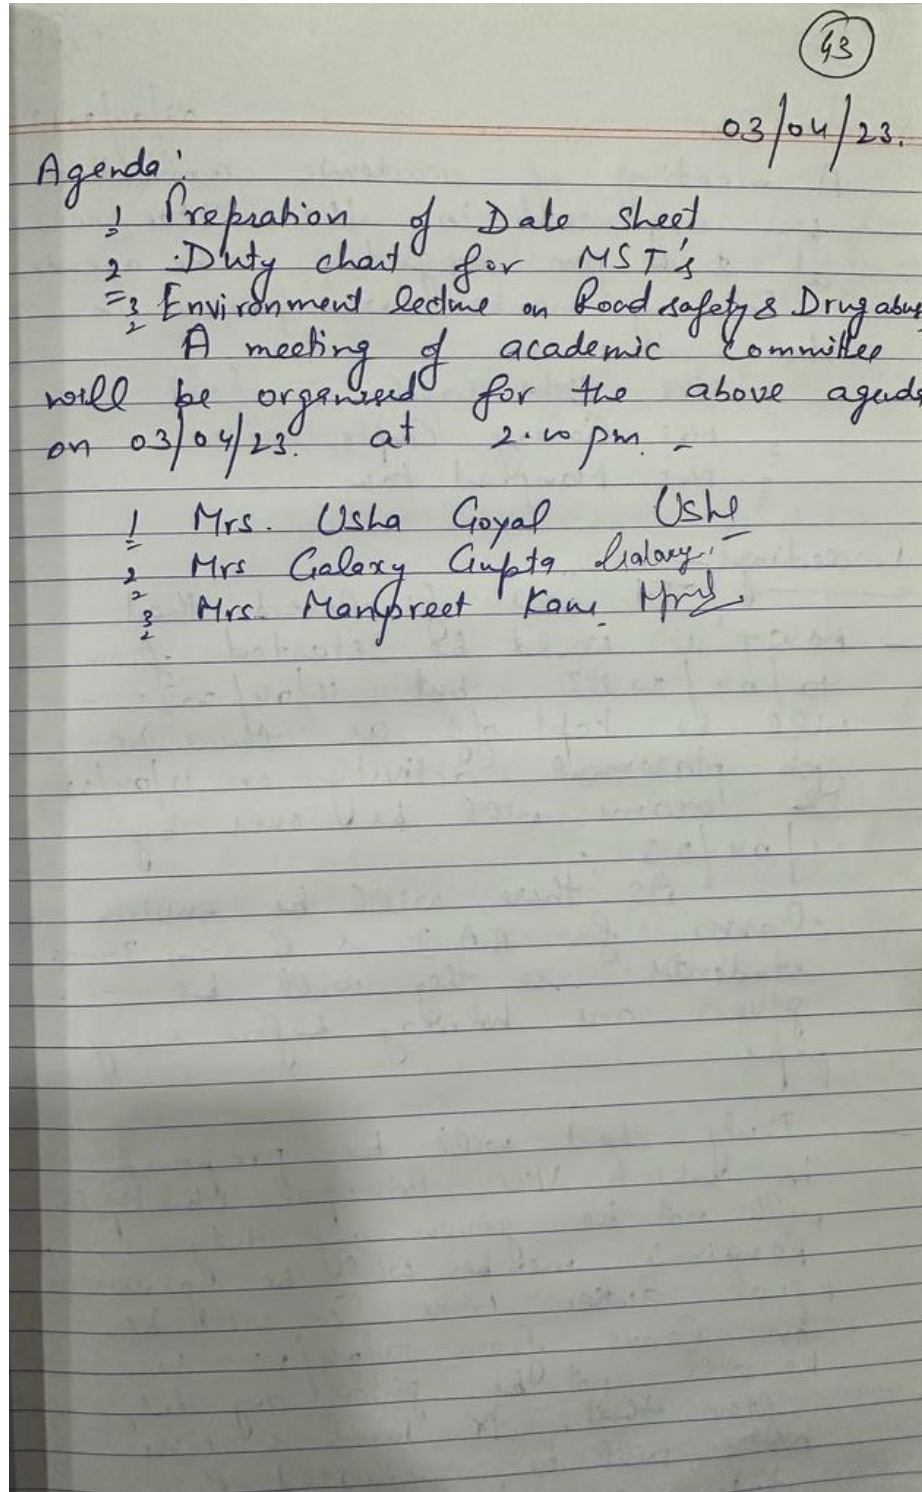 43
03/04/23.
Agenda:
1 Prepration of Date sheet
2 Duty chart for MST's
3 Environment lecture on Road safety & Drug abus
A meeting of academic Committee
will be organised for the above agenda
on 03/04/23. at 2.00 pm.
1 Mrs. Usha Goyal Usha
2 Mrs Galaxy Gupta Galaxy.
3 Mrs. Manpreet Kaur